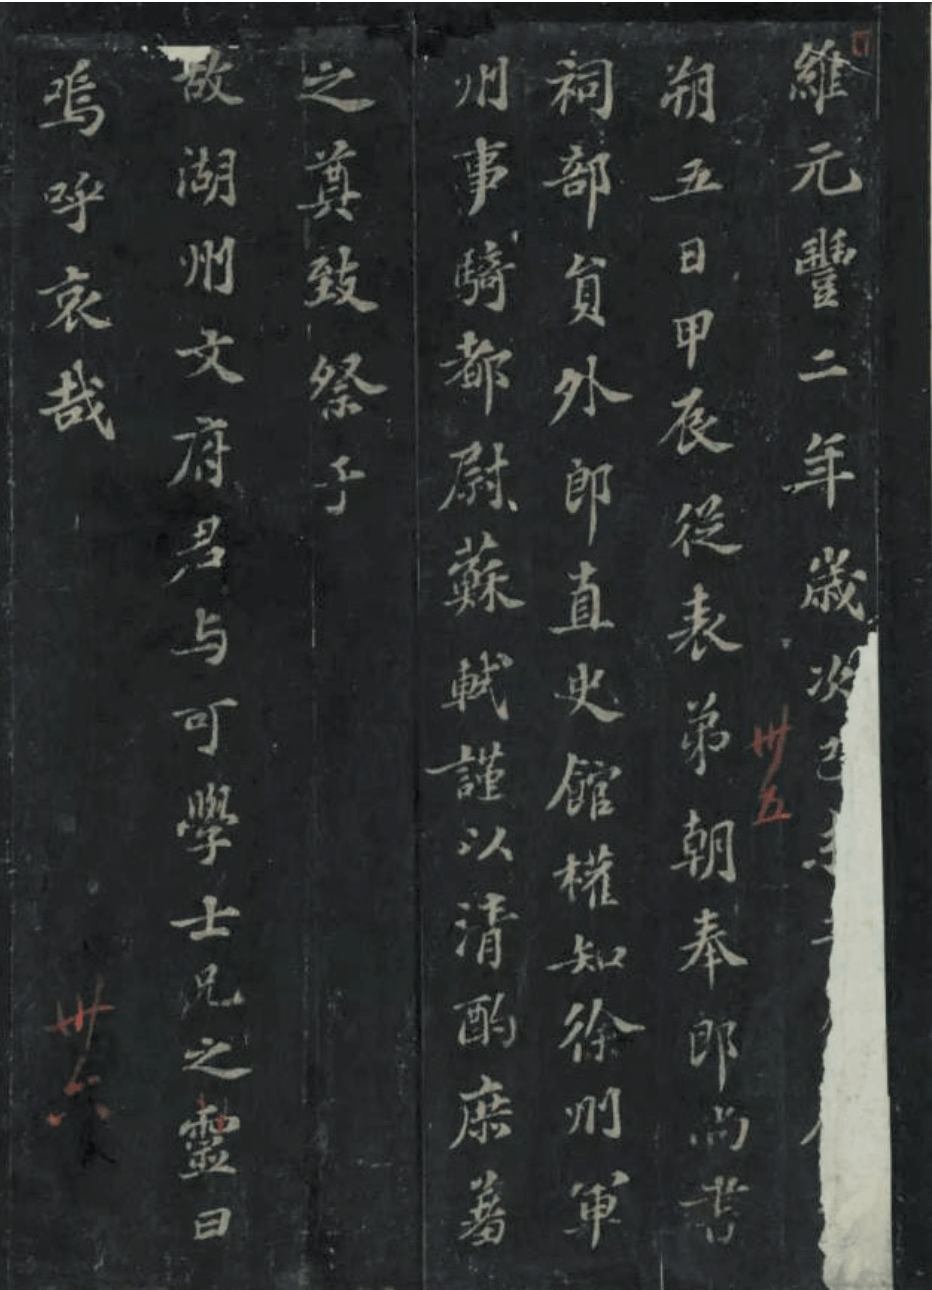 維元豐二年歲次己未
朔五日甲辰從表弟朝奉郎尚書
祠部員外郎直史館權知徐州軍
州事騎都尉蘇軾謹以清酌庶羞
之奠致祭于
故湖州文府君与可學士兄之靈曰
嗚呼哀哉
卅五
卅六